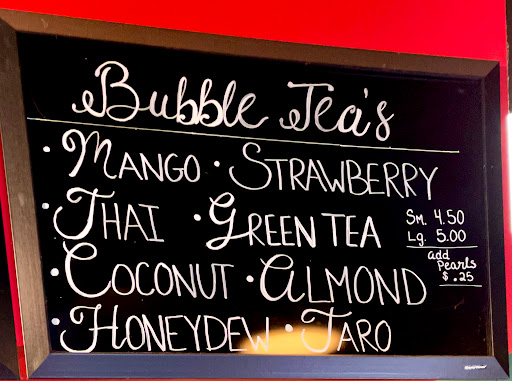 Bubble Tea's
· MANGO · STRAWBERRY
· THAI · GREEN TEA
· COCONUT · ALMOND
· HONEYDEW · TARO
Sm. 4.50
Lg. 5.00
add
Pearls
$ .25